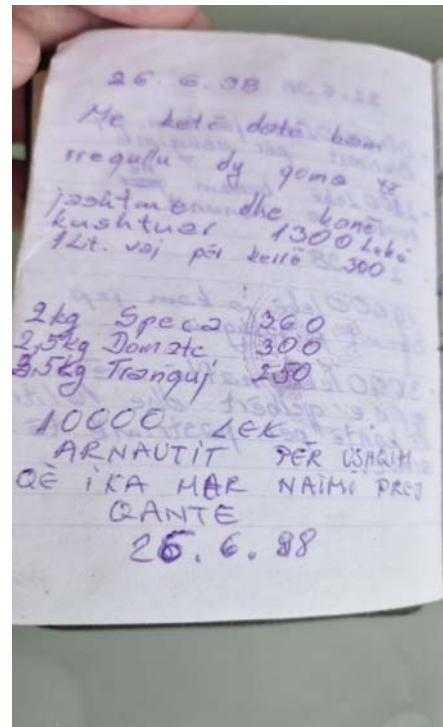 26. 6. 98
Me ketë datë kam
rregullu dy goma të
jashtme dhe kanë
kushtuar 1300 Lekë
1 Lit. vaj për kerrë 300
2 kg Speca 360
2,5 kg Domate 300
3,5 kg Tranguj 250
10000 LEK
ARNAUTIT PËR USHQIM
QË I KA MAR NAIMI PREJ
QANTE
26. 6. 98